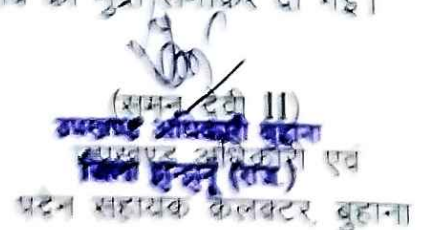 लगाकर दी गई।
(सुमन देवी II)
उपखण्ड अधिकारी बुहाना
उपखण्ड अधिकारी एवं
जिला झुन्झुनू (राज.)
पदेन सहायक कलक्टर, बुहाना